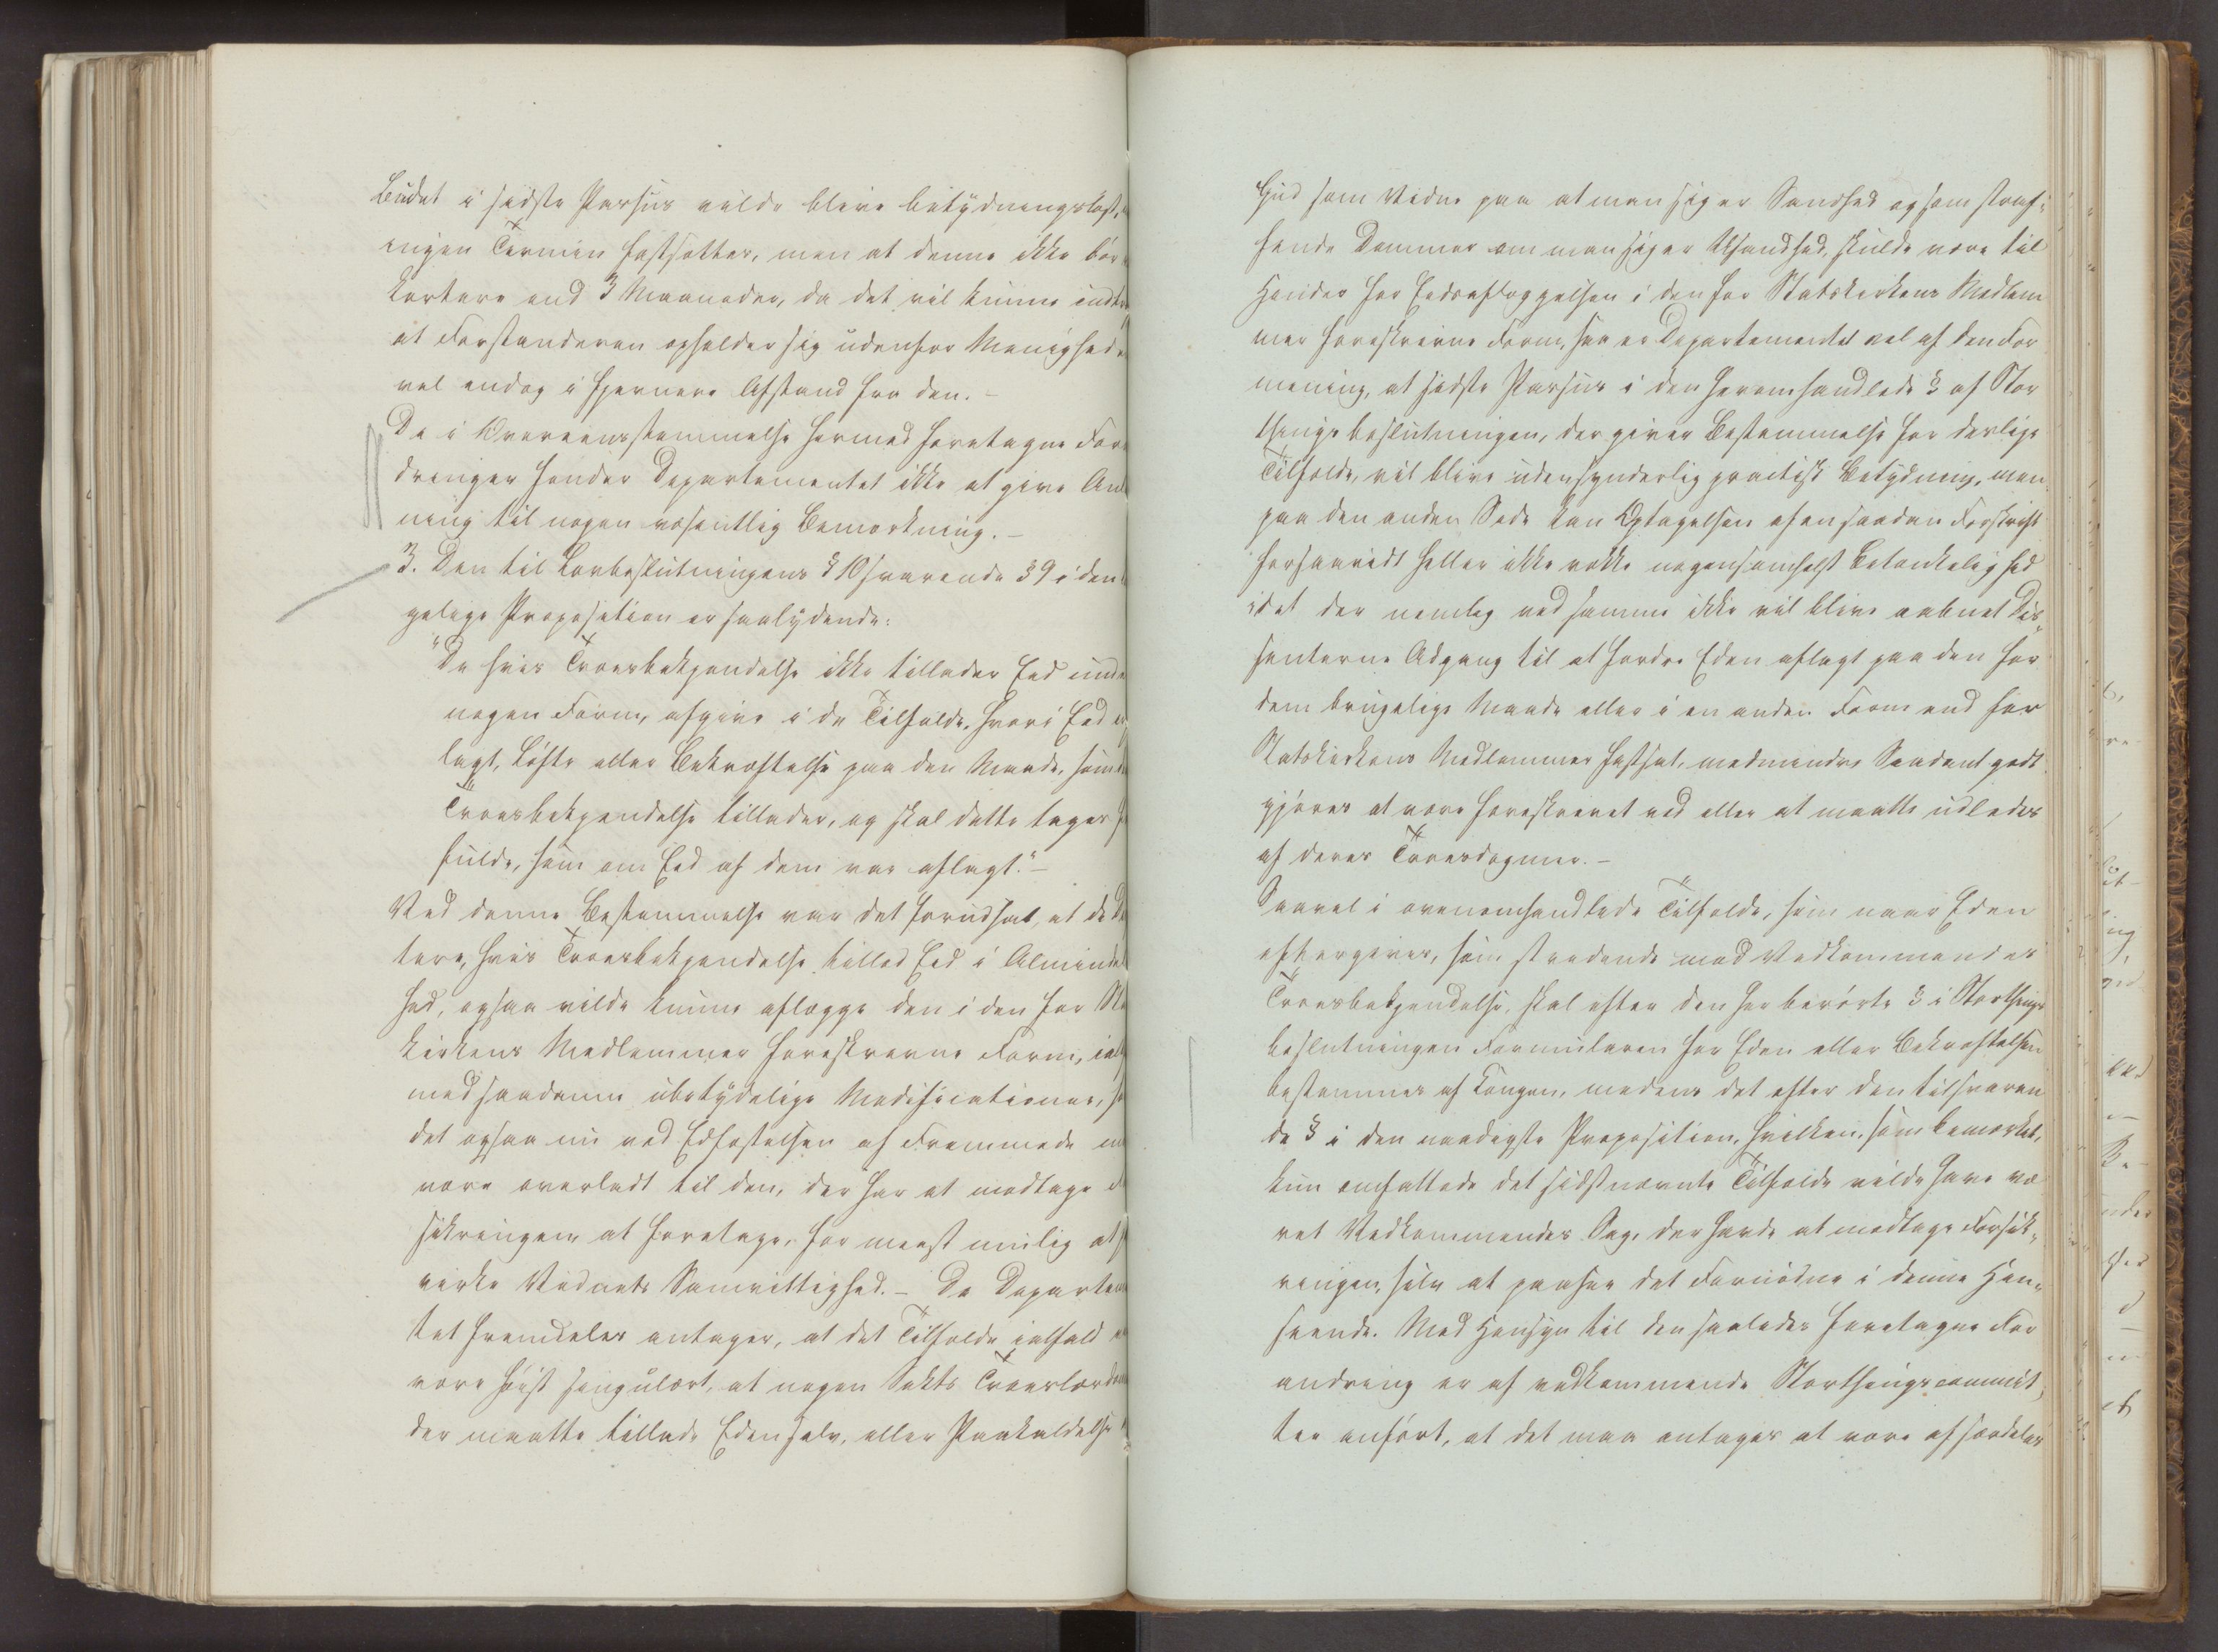 Budet i sidste Passus vilde blive betydningsløst,
ingen Termin fastsættes, men at denne ikke bør
kortere end 3 Maaneder, da det vil kunne
at Forstanderen opholder sig udenfor Menighed
vel endog i fjernere Afstand fra den. –
De i Overeensstemmelse hermed foretagne For
dringer finder Departementet ikke at give An
ning til nogen væsentlig Bemærkning. –
3. Den til Lovbeslutningens § 10 svarende § 9 i den
gelige Proposition er saalydende:
"De hvis Troesbekjendelse ikke tillader Eed und
nogen Form, afgive i de Tilfælde, hvori Eed
lagt, Løfte eller Bekræftelse paa den Maade, som
Troesbekjendelse tillader, og skal dette tages
fulde, som om Eed af dem var aflagt." –
Ved denne Bestemmelse var det forudsat, at de
tere, hvis Troesbekjendelse tillod Eed i Almindel
hed, ogsaa vilde kunne aflægge den i den for St
kirkens Medlemmer foreskrevne Form,
med saadanne ubetydelige Modificationer,
det ogsaa nu ved Edfæstelsen af Fremmede
være overladt til den, der har at modtage
sikringen at foretage, for meest mulig at
virke Vidnets Samvittighed. – Da Departe
tet fremdeles antager, at det Tilfælde ialfald
være høist singulært, at nogen Sekts Troeslærdom
der maatte tillade Eden selv, eller Paakaldelse
Gud som Vidne paa at man siger Sandhed og som straf-
fende Dommer om man siger Usandhed, skulde være til
Hinder for Eedsaflæggelsen i den for Statskirkens Medlem
mer foreskrevne Form, saa er Departementet vel af den For
mening, at sidste Passus i den heromhandlede § af Stor
thingsbeslutningen, der giver Bestemmelse for deslige
Tilfælde, vil blive uden synderlig practisk Betydning, men
paa den anden Side kan Optagelsen af en saadan Forskrift
forsaavidt heller ikke vække nogensomhelst Betænkelighed
idet der nemlig ved samme ikke vil blive aabnet Dis„
senterne Adgang til at fordre Eden aflagt paa den for
dem brugelige Maade eller i en anden Form end for
Statskirkens Medlemmer fastsat, medmindre Saadant godt
gjøres at være foreskrevet ved eller at maatte udledes
af deres Troesdogmer. –
Saavel i ovenomhandlede Tilfælde, som naar Eden
eftergives, som stridende mod Vedkommendes
Troesbekjendelse, skal efter den her berørte § i Storthings
beslutningen Formularen for Eden eller Bekræftelsen
bestemmes af Kongen, medens det efter den tilsvaren
de § i den naadigste Proposition, hvilken, som bemærket,
kun omfattede det sidstnævnte Tilfælde vilde have væ
ret Vedkommendes Sag, der havde at modtage Forsik„
ringen, selv at paasee det Fornødne i denne Hen„
seende. Med Hensyn til den saaledes foretagne For
andring er af vedkommende Storthingscommit„
tee anført, at det maa antages at være af særdeles